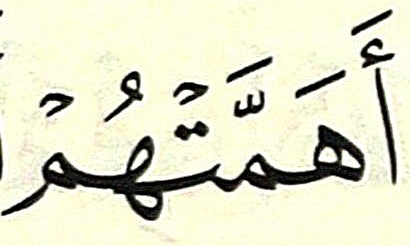 أَهَمَّتۡهُمۡ